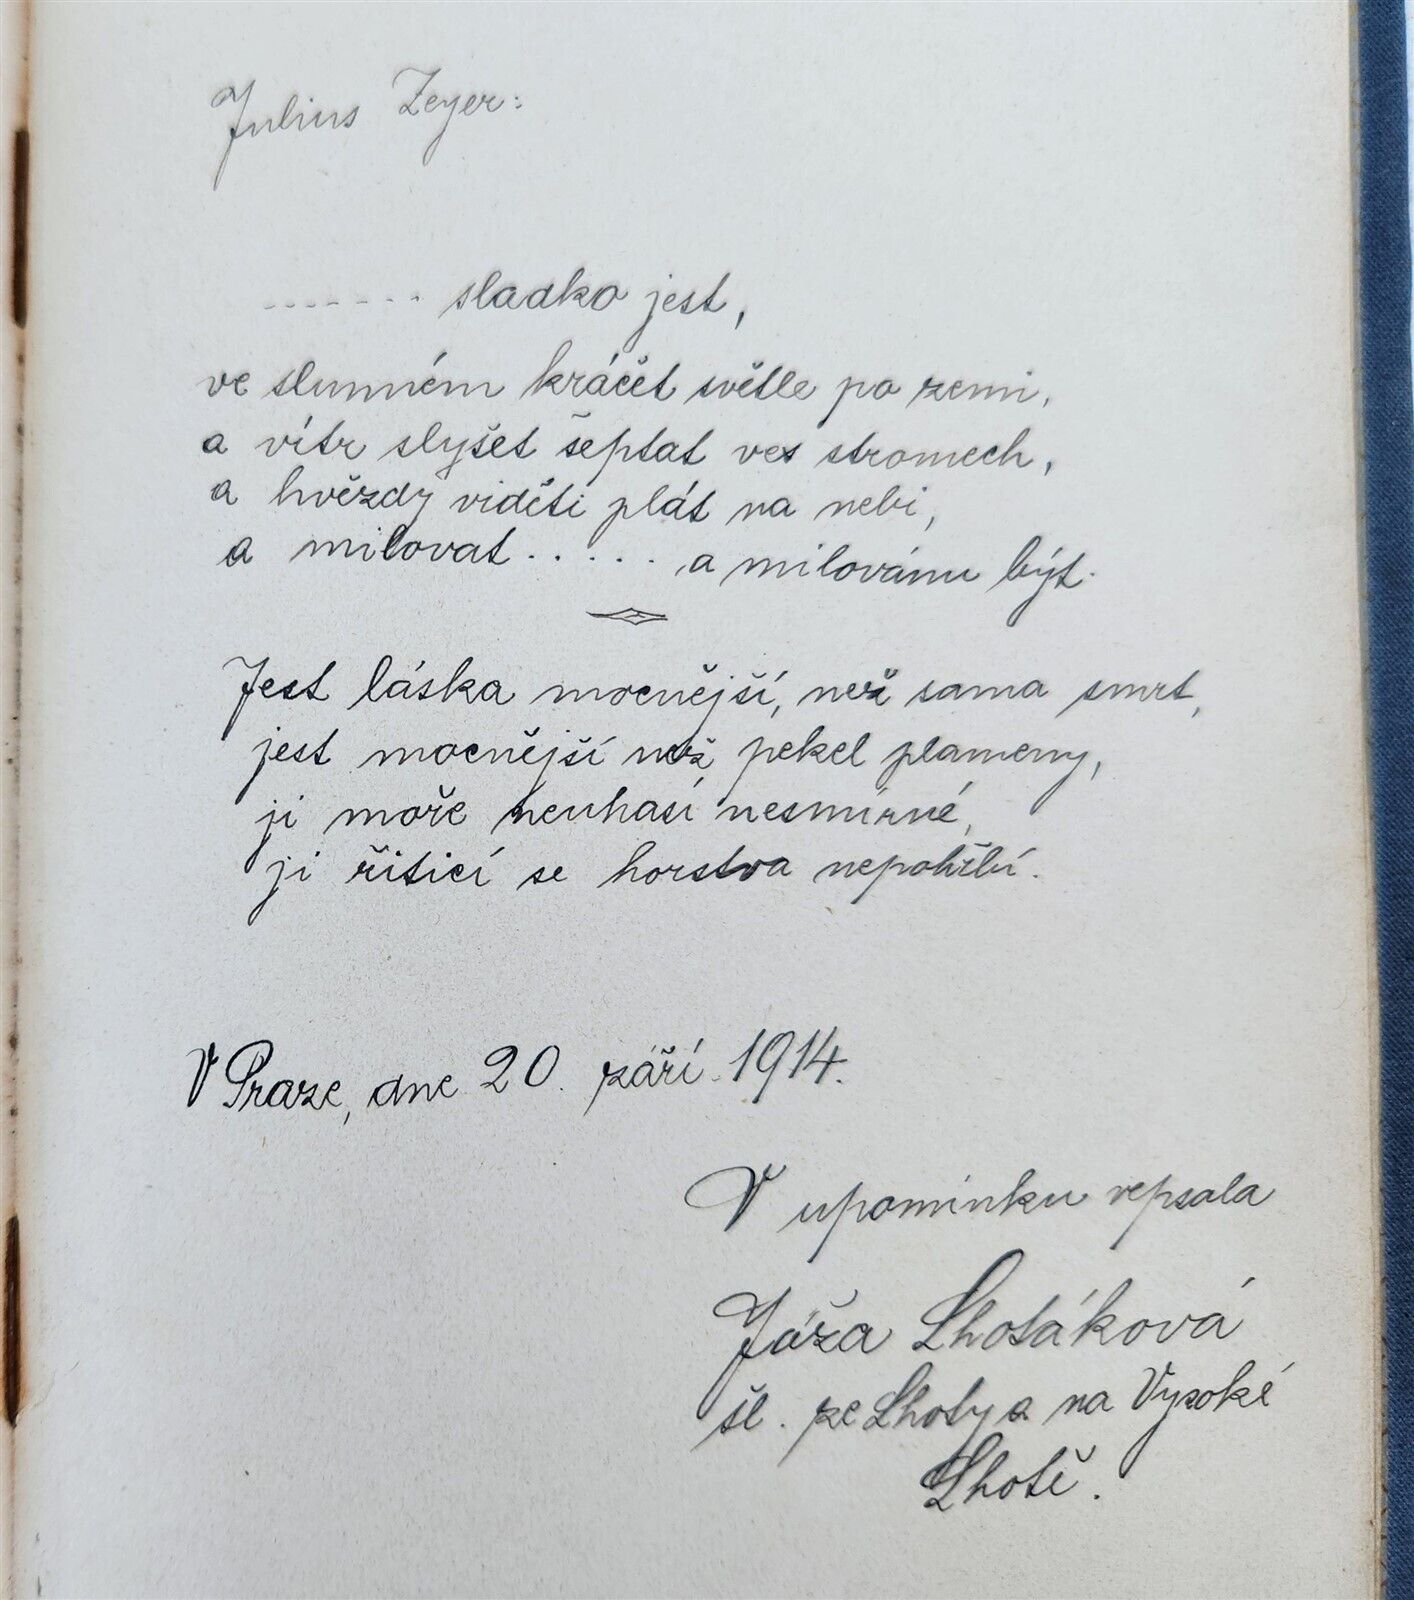 Julius Zeyer:
------- sladko jest,
ve slunném kráčet světle po zemi,
a vítr slyšet šeptat ves stromech,
a hvězdy viděti plát na nebi,
a milovat ..... a milovánu být.
Jest láska mocnější, než sama smrt,
jest mocnější než pekel plameny,
ji moře neuhasí nesmírné,
ji řítící se horstva nepohřbí.
V Praze, dne 20. září 1914.
V upomínku vepsala
Jóža Lhotáková
šl. ze Lhoty a na Vysoké
Lhotě.